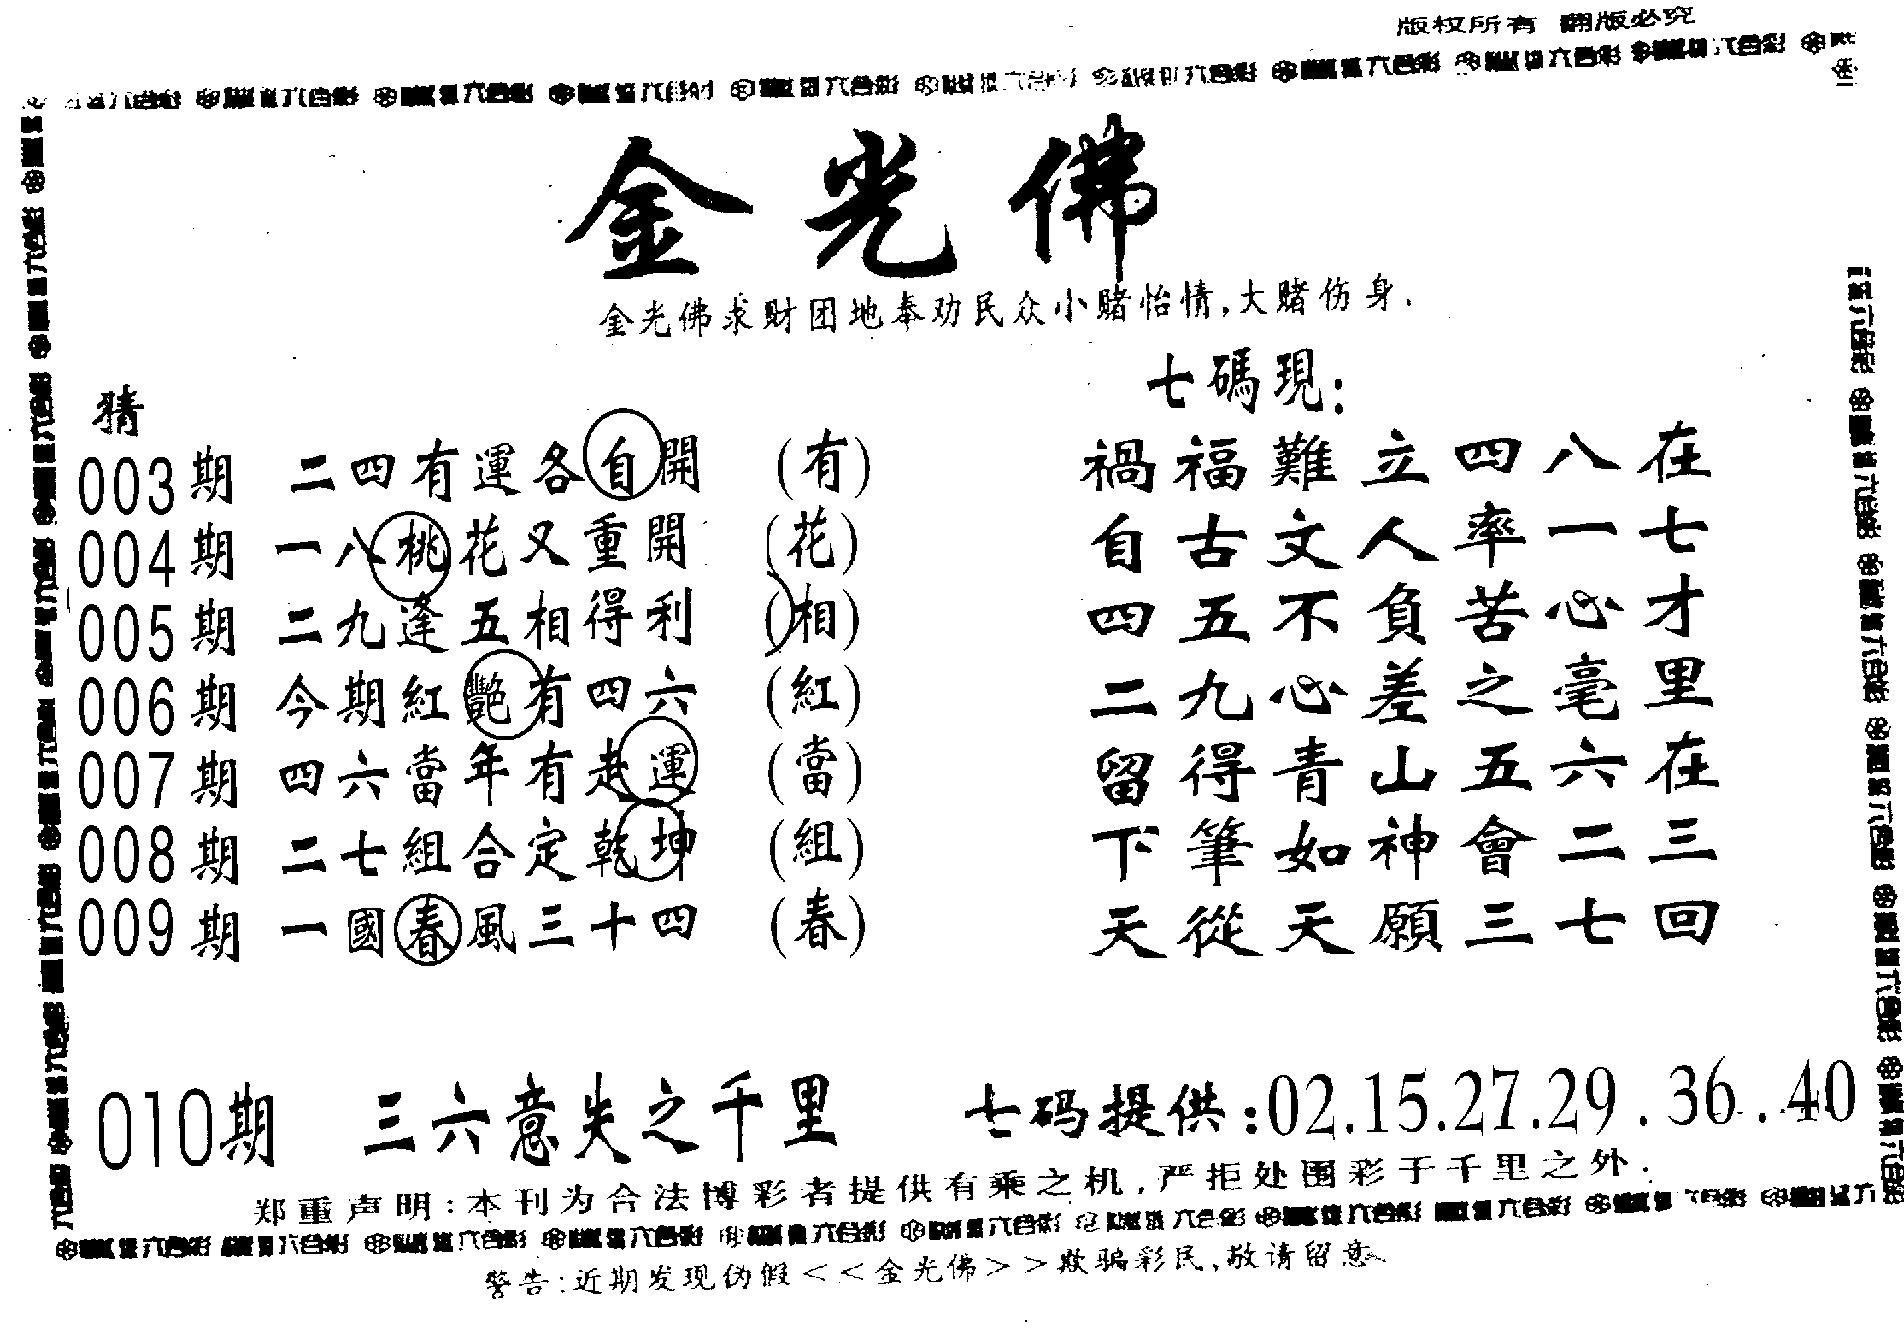 版权所有 翻版必究
金光佛
金光佛求财团地奉劝民众小赌怡情,大赌伤身.
七碼現:
猜
003期 二四有運各自開 (有) 禍福難立四八在
004期 一八桃花又重開 (花) 自古文人率一七
005期 二九逢五相得利 (相) 四五不負苦心才
006期 今期紅艷有四六 (紅) 二九心差之毫里
007期 四六當年有走運 (當) 留得青山五六在
008期 二七組合定乾坤 (組) 下筆如神會二三
009期 一國春風三十四 (春) 天從天願三七回
010期 三六意失之千里 七码提供:02.15.27.29.36..40
郑重声明:本刊为合法博彩者提供有乘之机,严拒处围彩于千里之外.
警告:近期发现伪假<<金光佛>>欺骗彩民,敬请留意